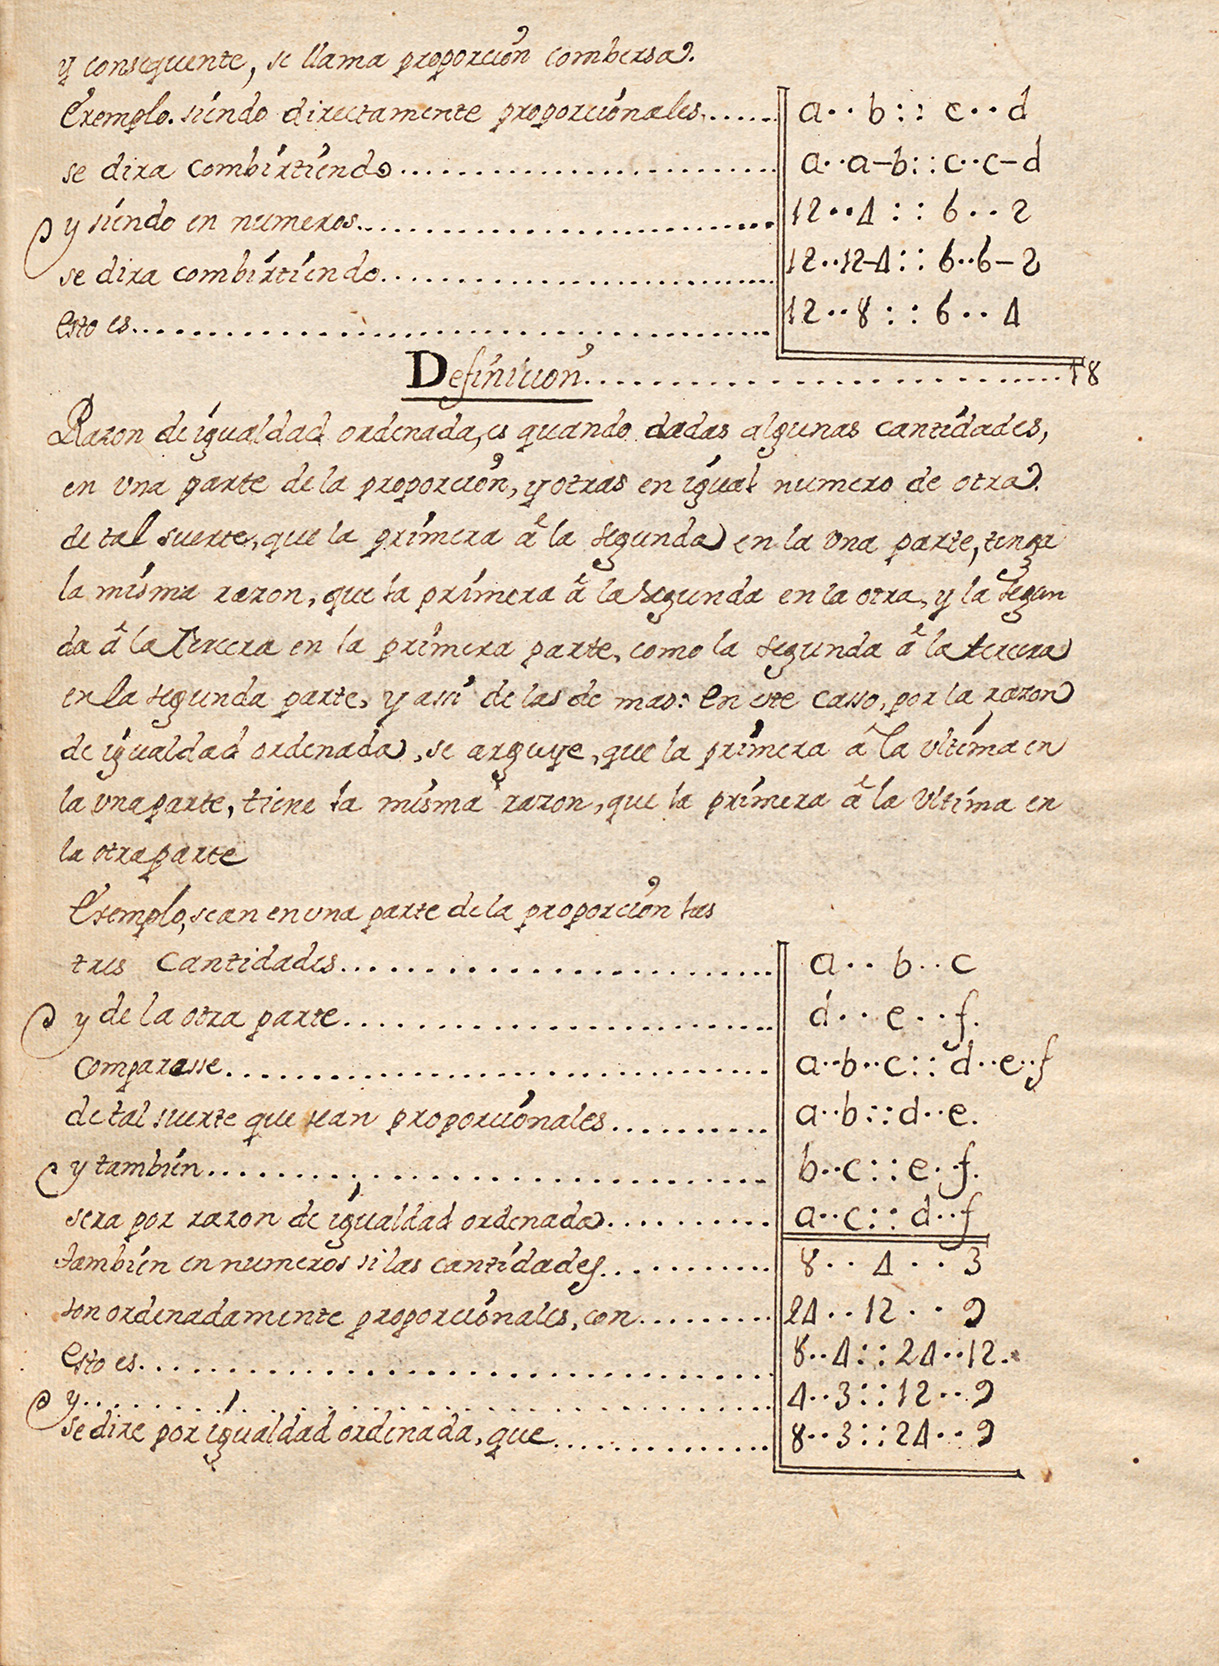 y consequente, se llama proporcion combersa.
Exemplo. siendo directamente proporcionales....... a··b::c··d
se dira combirtiendo....... a··a-b::c··c-d
y siendo en numeros....... 12··4::6··2
se dira combirtiendo....... 12··12-4::6··6-2
esto es....... 12··8::6··4
Definicion....... 18
Razon de igualdad ordenada, es quando dadas algunas cantidades,
en una parte de la proporcion, y otras en igual numero de otra.
de tal suerte, que la primera â la segunda en la una parte, tenga
la misma razon, que la primera â la segunda en la otra, y la segun
da â la tercera en la primera parte, como la segunda â la tercera
en la segunda parte, y assi de las de mas: En este casso, por la razon
de igualdad ordenada, se arguye, que la primera â la ultima en
la una parte, tiene la misma razon, que la primera â la ultima en
la otra parte
Exemplo, sean en una parte de la proporcion las
tres cantidades....... a··b··c
y de la otra parte....... d··e··f.
comparasse....... a··b··c::d··e··f
de tal suerte que sean proporcionales....... a··b::d··e.
y tambien....... b··c::e··f.
sera por razon de igualdad ordenada....... a··c::d··f
tambien en numeros si las cantidades....... 8··4··3
son ordenadamente proporcionales, con....... 24··12··9
esto es....... 8··4::24··12.
y....... 4··3::12··9
se dire por igualdad ordenada, que....... 8··3::24··9